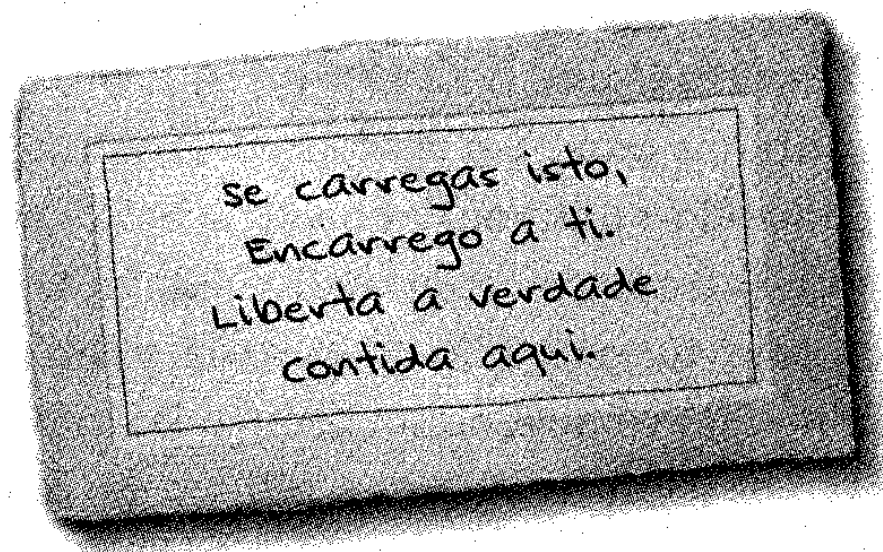 Se carregas isto,
Encarrego a ti.
Liberta a verdade
contida aqui.